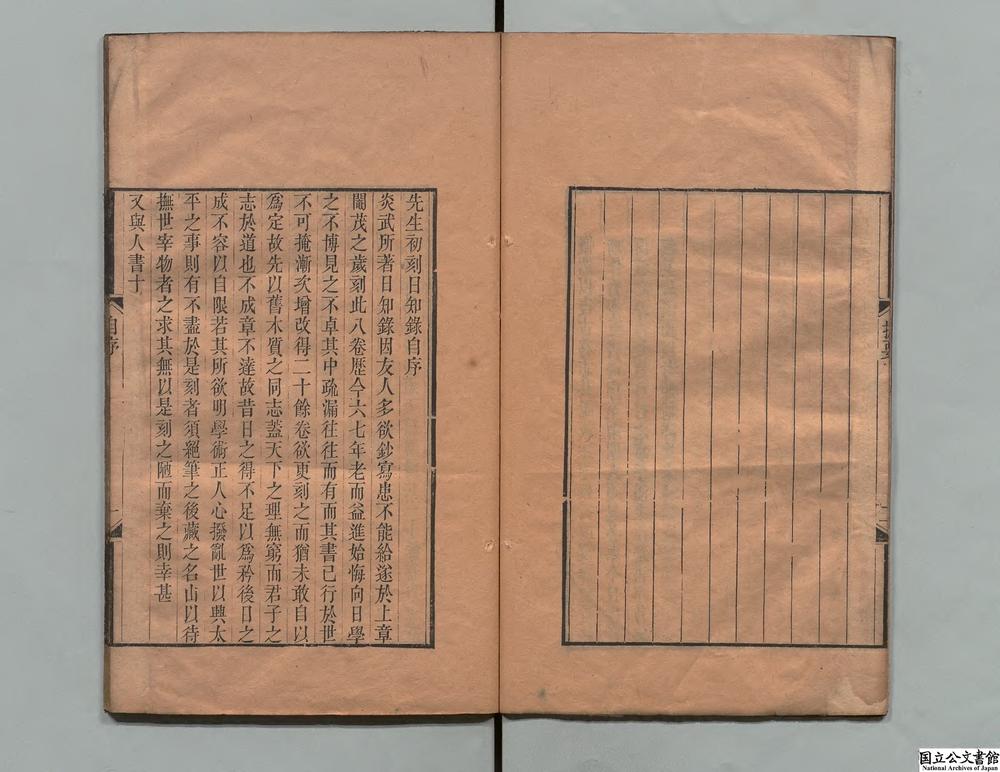 先生初刻日知錄自序
炎武所著日知錄因友人多欲鈔寫患不能給遂於上章
閹茂之歲刻此八卷歷今六七年老而益進始悔向日學
之不博見之不卓其中疏漏往往而有而其書已行於世
不可掩漸次增改得二十餘卷欲更刻之而猶未敢自以
爲定故先以舊本質之同志蓋天下之理無窮而君子之
志於道也不成章不達故昔日之得不足以爲矜後日之
成不容以自限若其所欲明學術正人心撥亂世以興太
平之事則有不盡於是刻者須絕筆之後藏之名山以待
撫世宰物者之求其無以是刻之陋而棄之則幸甚
又與人書十
自序
一
国立公文書館
National Archives of Japan